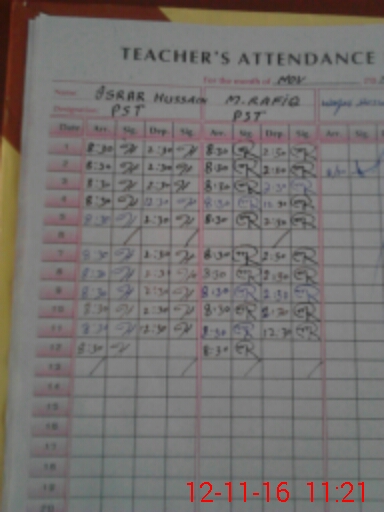 TEACHER'S ATTENDANCE
For the month of Nov
Name: ISRAR HUSSAIN M. RAFIQ
Designation: PST PST
Date Arr. Sig. Dep. Sig. Arr. Sig. Dep. Sig. Arr. Sig.
1 8:30 2:30 8:30 2:30
2 8:30 2:30 8:30 2:30
3 8:30 2:30 8:30 2:30
4 8:30 12:30 8:30 12:30
5 8:30 2:30 8:30 2:30
6
7 8:30 2:30 8:30 2:30
8 8:30 2:30 8:30 2:30
9 8:30 2:30 8:30 2:30
10 8:30 2:30 8:30 2:30
11 8:30 12:30 8:30 12:30
12 8:30 8:30
13
14
15
16
17
18
19
20
12-11-16 11:21